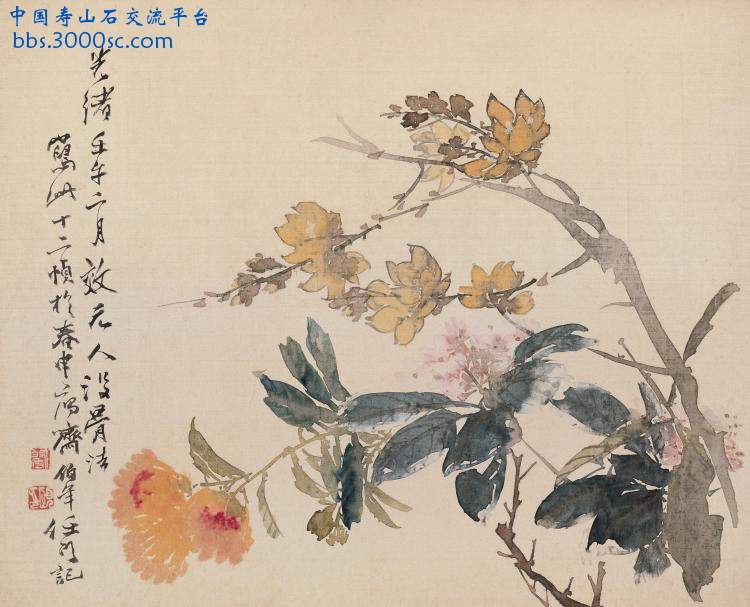 中国寿山石交流平台
bbs.3000sc.com
光緒壬午二月效元人設骨法
寫此十二幀於春申寓齋伯年任頤記